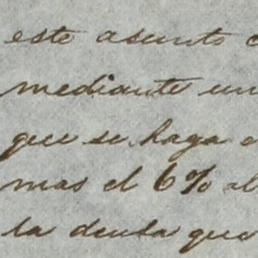 este asunto
mediante un
que se haga
mas el 6% al
la deuda que